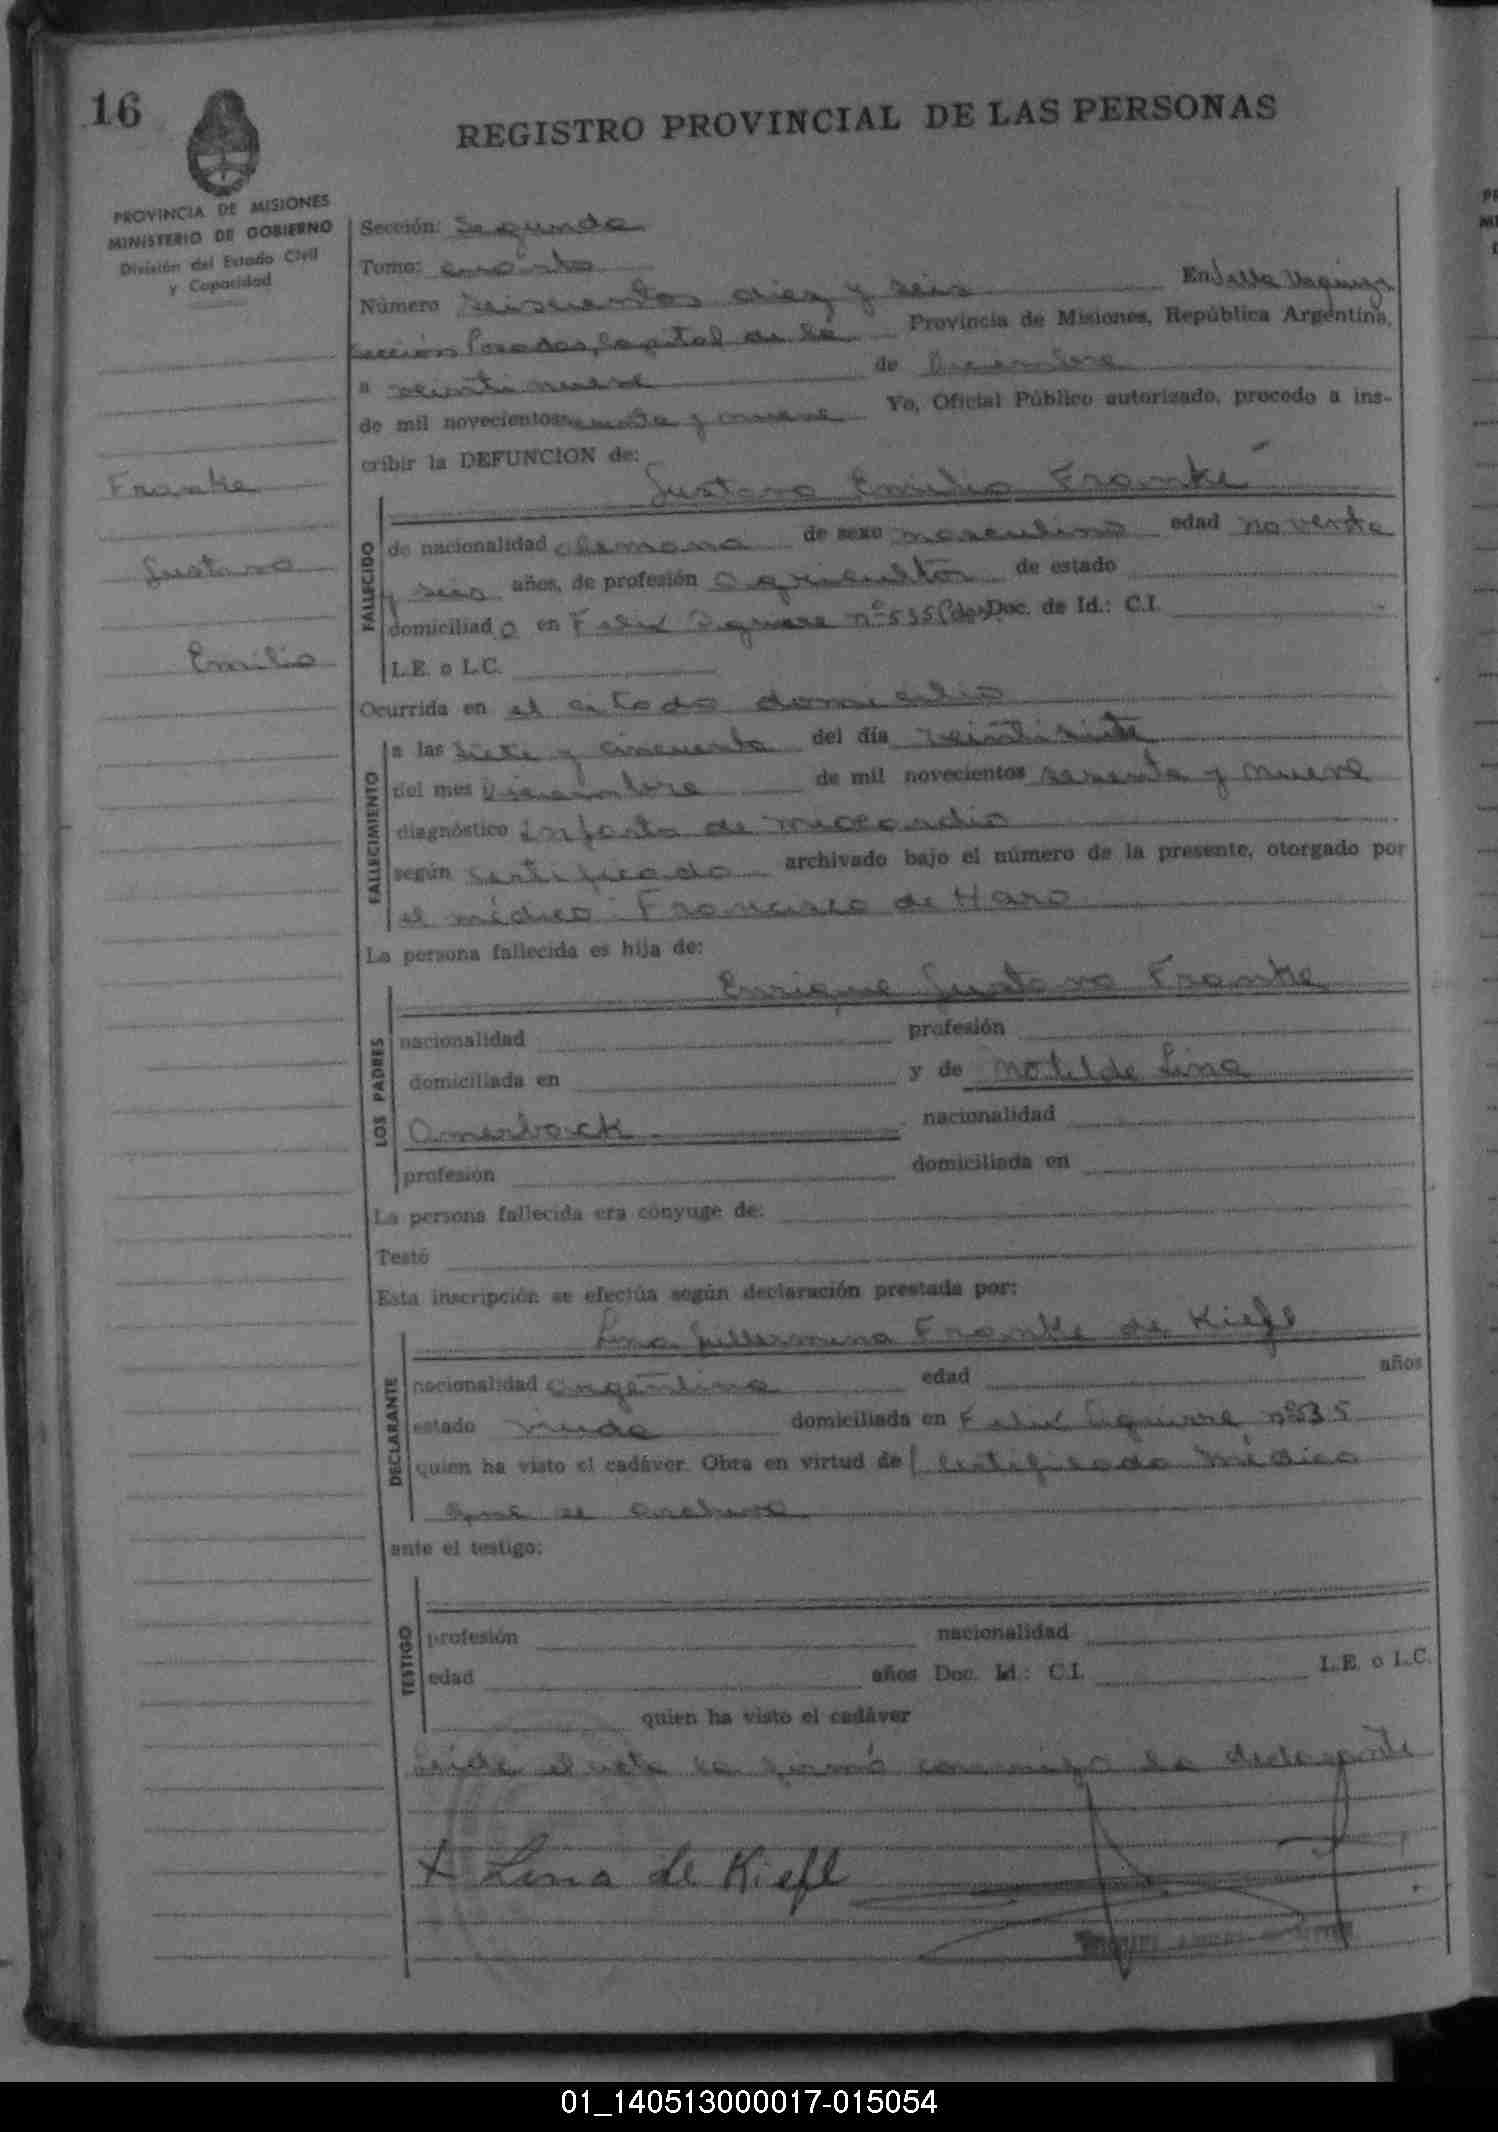 16
REGISTRO PROVINCIAL DE LAS PERSONAS
PROVINCIA DE MISIONES
MINISTERIO DE GOBIERNO
División del Estado Civil
y Capacidad
Franke
Gustavo
Emilio
Sección: Segunda
Tomo: cuarto
Número seiscientos diez y seis En Villa Urquiza
Sección Posadas, Capital de la Provincia de Misiones, República Argentina,
a veinti nueve de Diciembre
de mil novecientos sesenta y nueve Yo, Oficial Público autorizado, procedo a ins-
cribir la DEFUNCION de:
Gustavo Emilio Franke
FALLECIDO
de nacionalidad alemana de sexo masculino edad noventa
y seis años, de profesión agricultor de estado
domiciliado en Felix Aguirre nº 535 (Pdas) Doc. de Id.: C.I.
L.E. o L.C.
Ocurrida en el citado domicilio
FALLECIMIENTO
a las siete y cincuenta del día veintisiete
del mes Diciembre de mil novecientos sesenta y nueve
diagnóstico infarto de miocardio
según certificado archivado bajo el número de la presente, otorgado por
el médico: Francisco de Haro
La persona fallecida es hija de:
Enrique Gustavo Franke
LOS PADRES
nacionalidad profesión
domiciliada en y de Matilde Lina
Amerback nacionalidad
profesión domiciliada en
La persona fallecida era cónyuge de:
Testó
Esta inscripción se efectúa según declaración prestada por:
Lina Guillermina Franke de Kiefl
DECLARANTE
nacionalidad argentina edad años
estado viuda domiciliada en Felix Aguirre nº 535
quien ha visto el cadáver. Obra en virtud de certificado médico
que se archiva
ante el testigo:
TESTIGO
profesión nacionalidad
edad años Doc. Id.: C.I. L.E. o L.C.
quien ha visto el cadáver
Leída el acta la firmó conmigo la declarante
x Lina de Kiefl
01_140513000017-015054